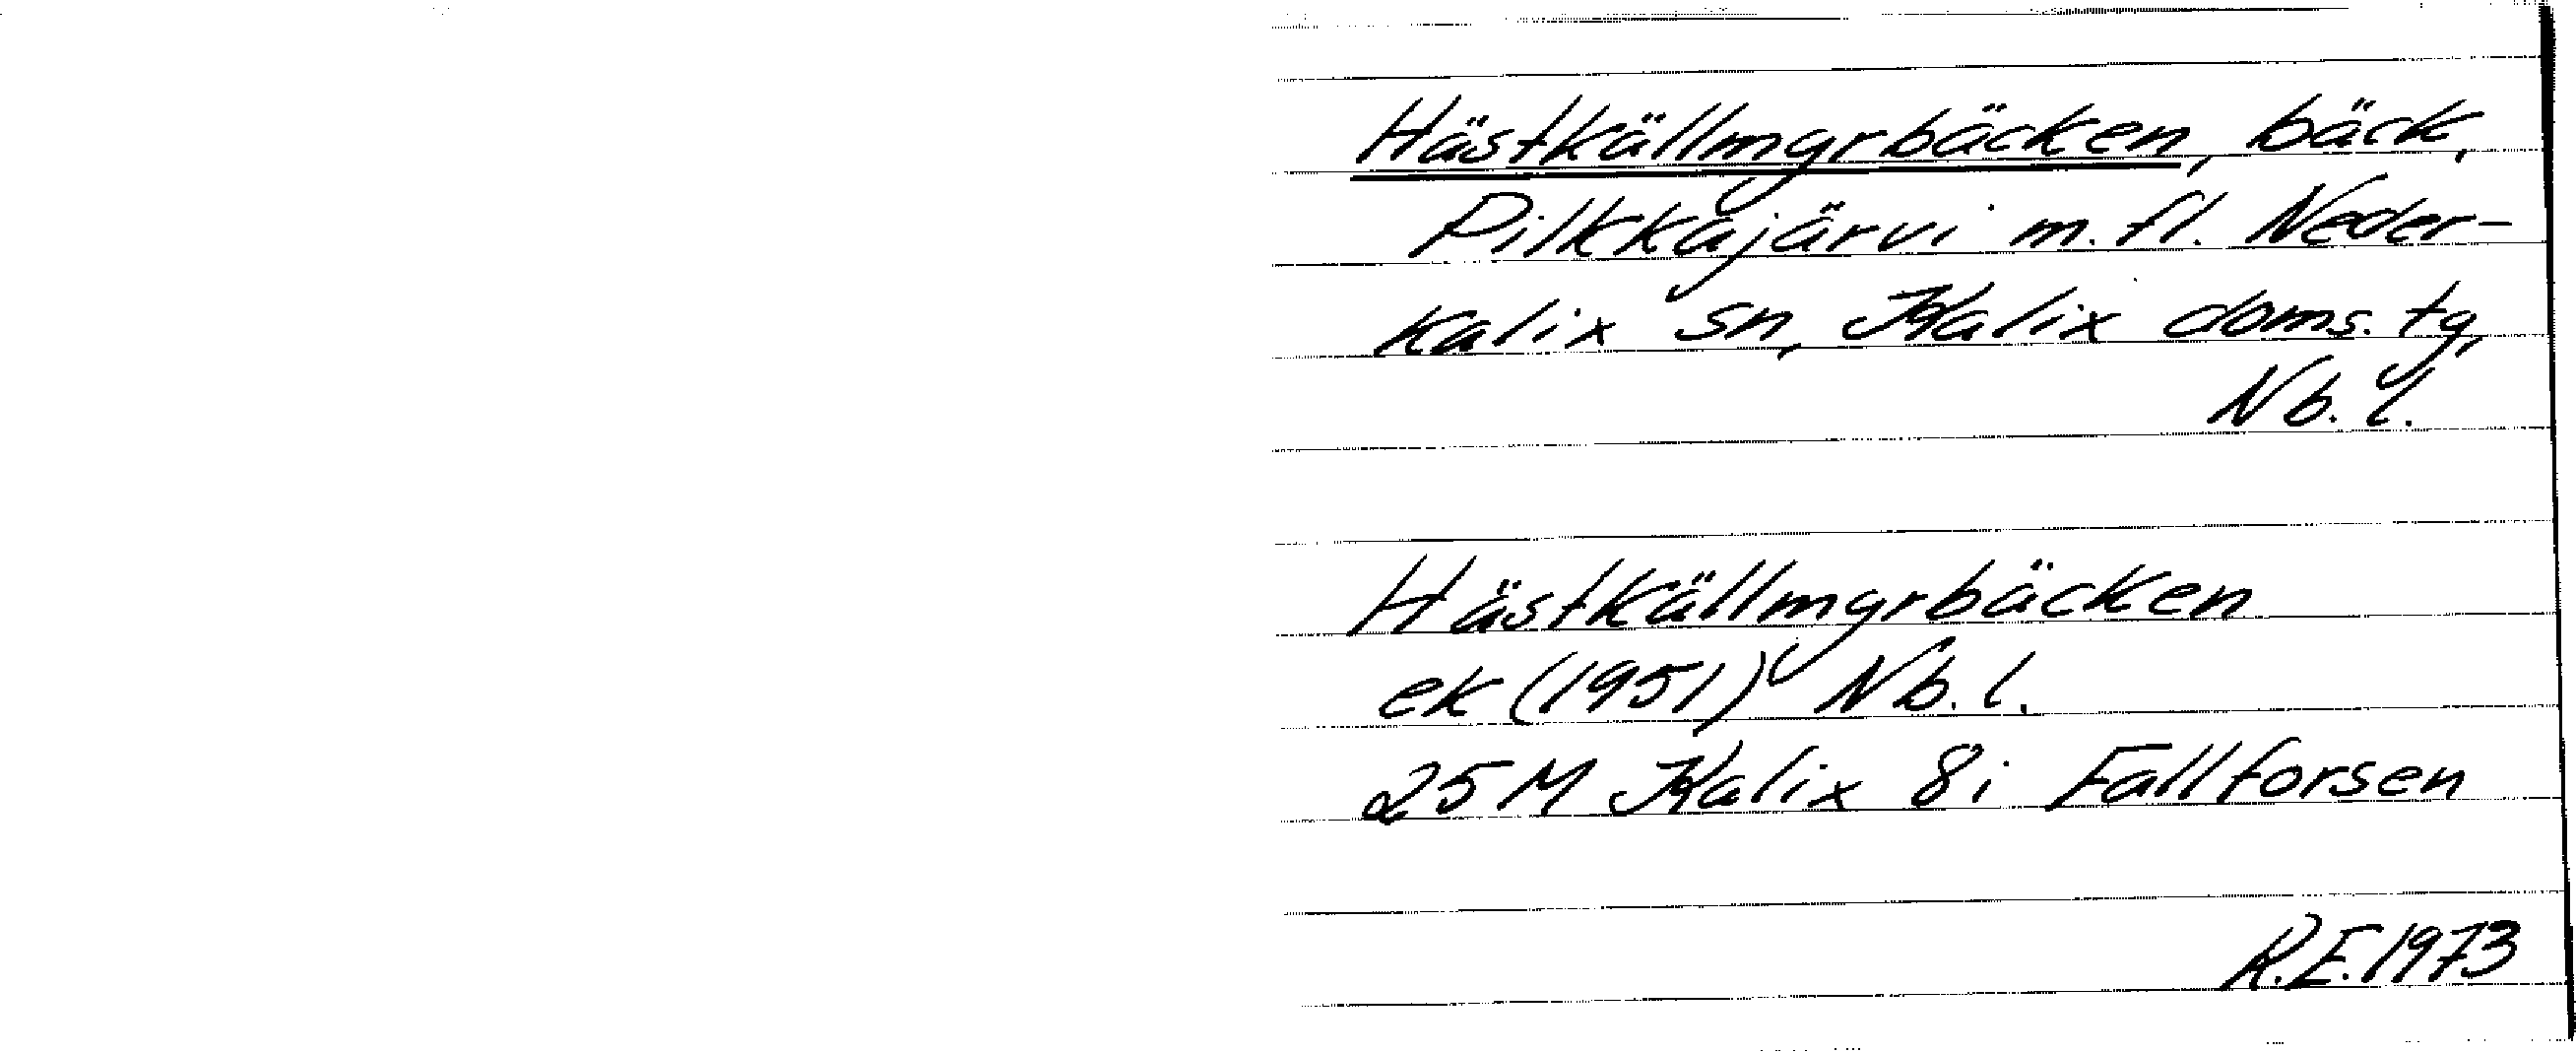 Hästkällmyrbäcken, bäck,
Pilkkajärvi m. fl. Neder-
kalix sn, Kalix doms. tg,
Nb. l.
Hästkällmyrbäcken
ek (1951) Nb. l.
25 M Kalix 8i Fallforsen
R.E. 1973